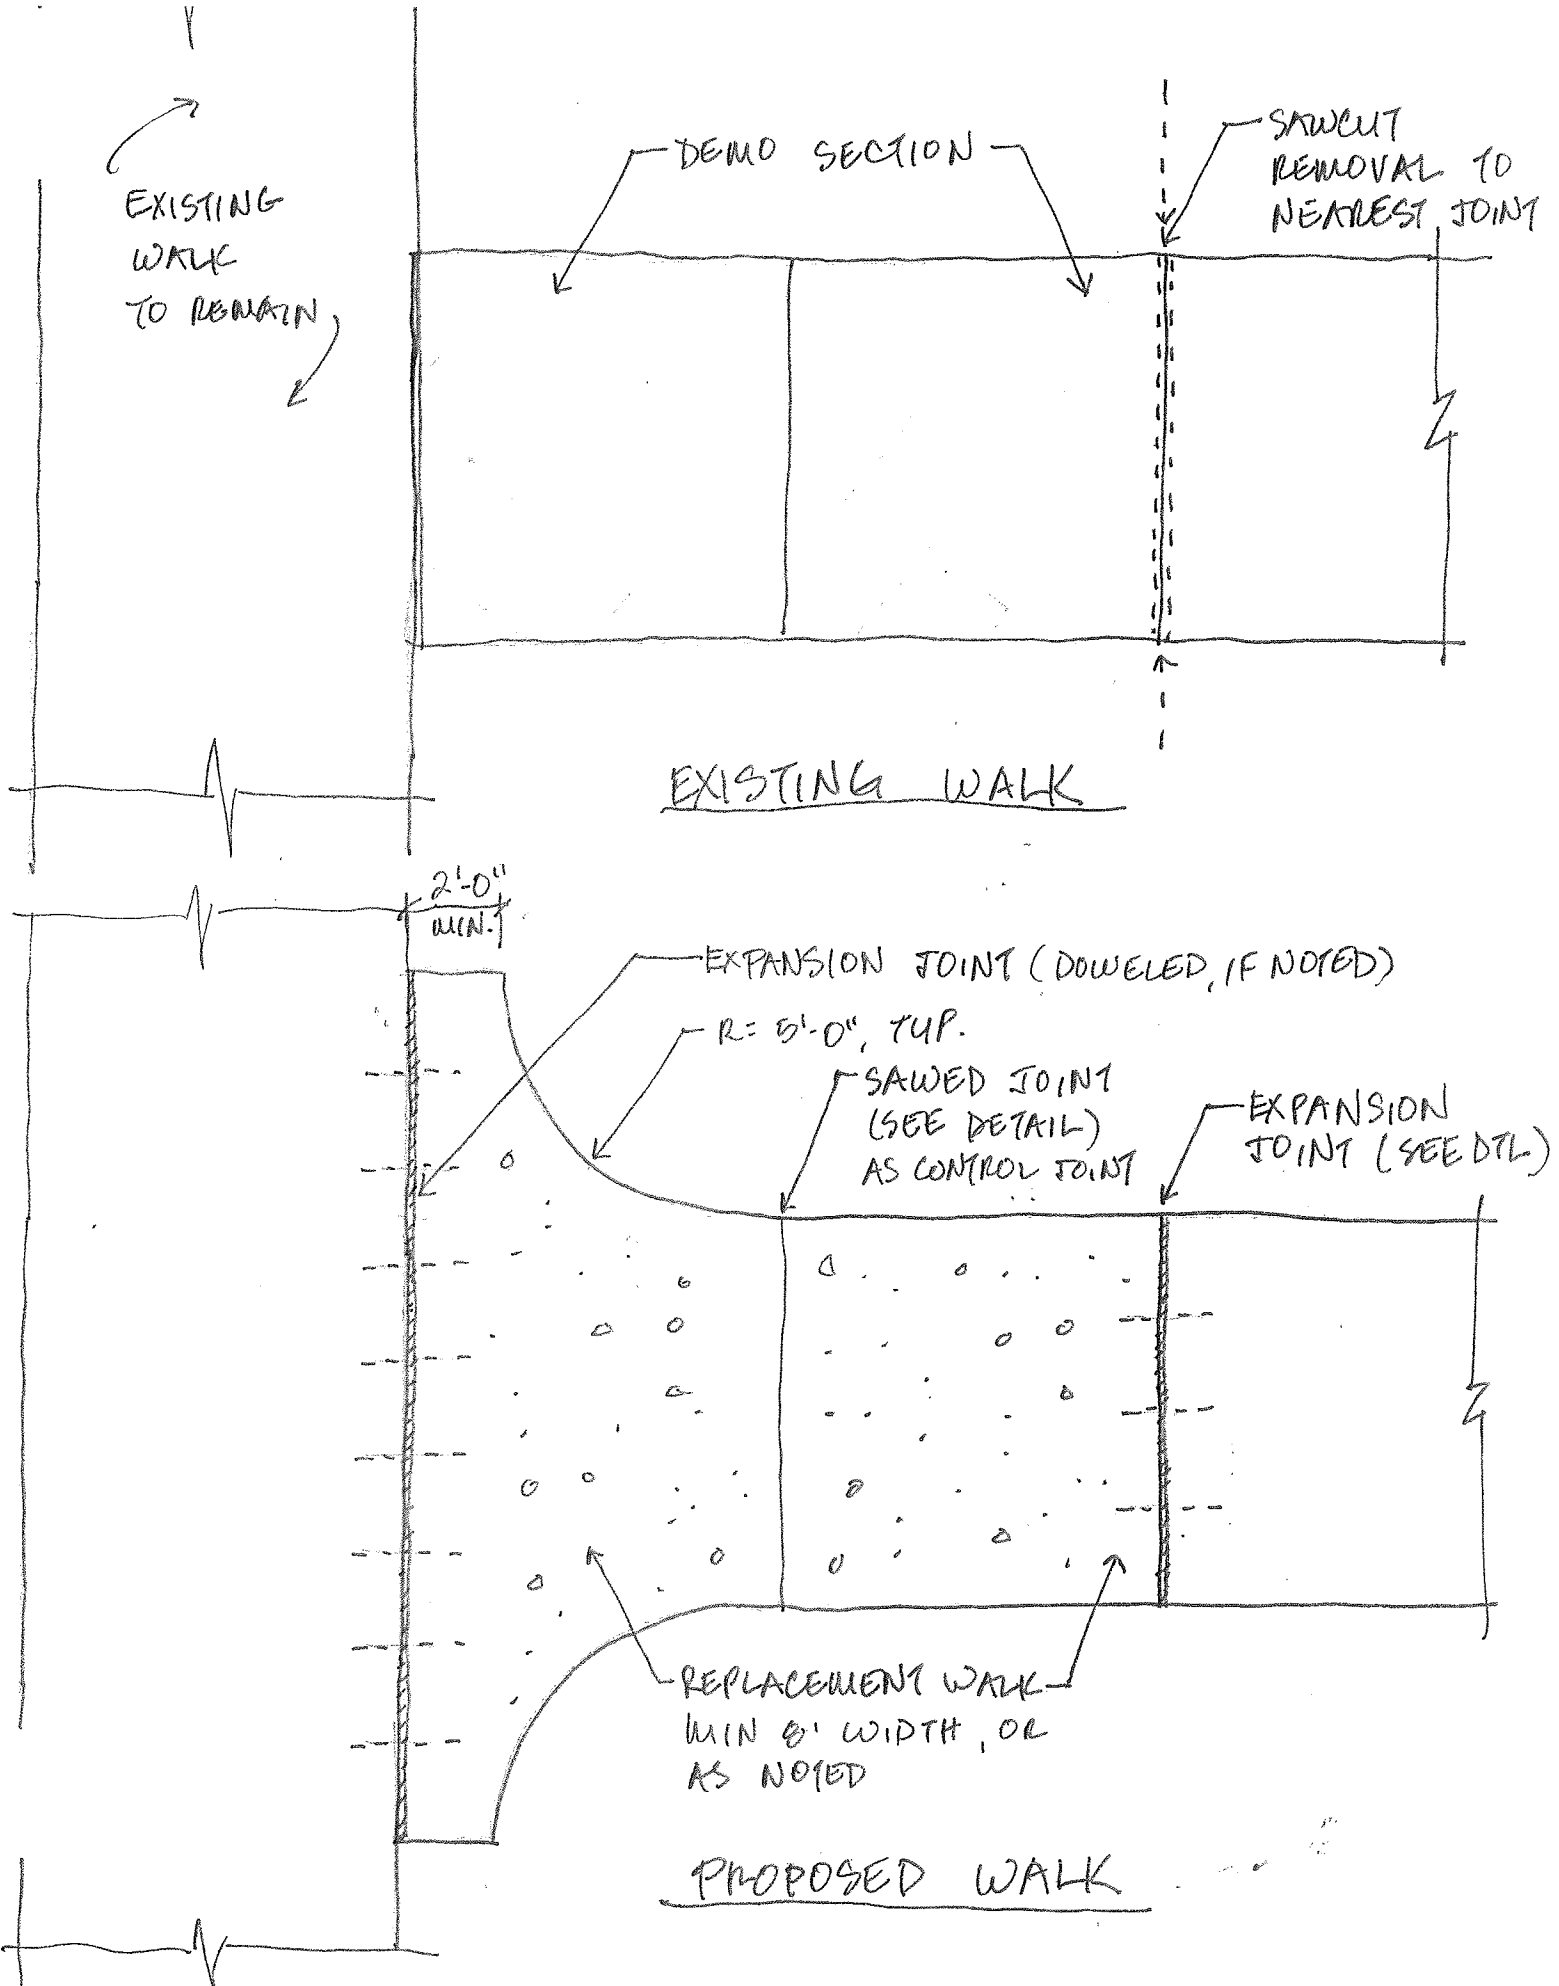 EXISTING
WALK
TO REMAIN
DEMO SECTION
SAWCUT
REMOVAL TO
NEAREST JOINT
EXISTING WALK
2'-0"
MIN.
EXPANSION JOINT (DOWELED, IF NOTED)
R= 5'-0", TYP.
SAWED JOINT
(SEE DETAIL)
AS CONTROL JOINT
EXPANSION
JOINT (SEE DTL)
REPLACEMENT WALK
MIN 8' WIDTH, OR
AS NOTED
PROPOSED WALK